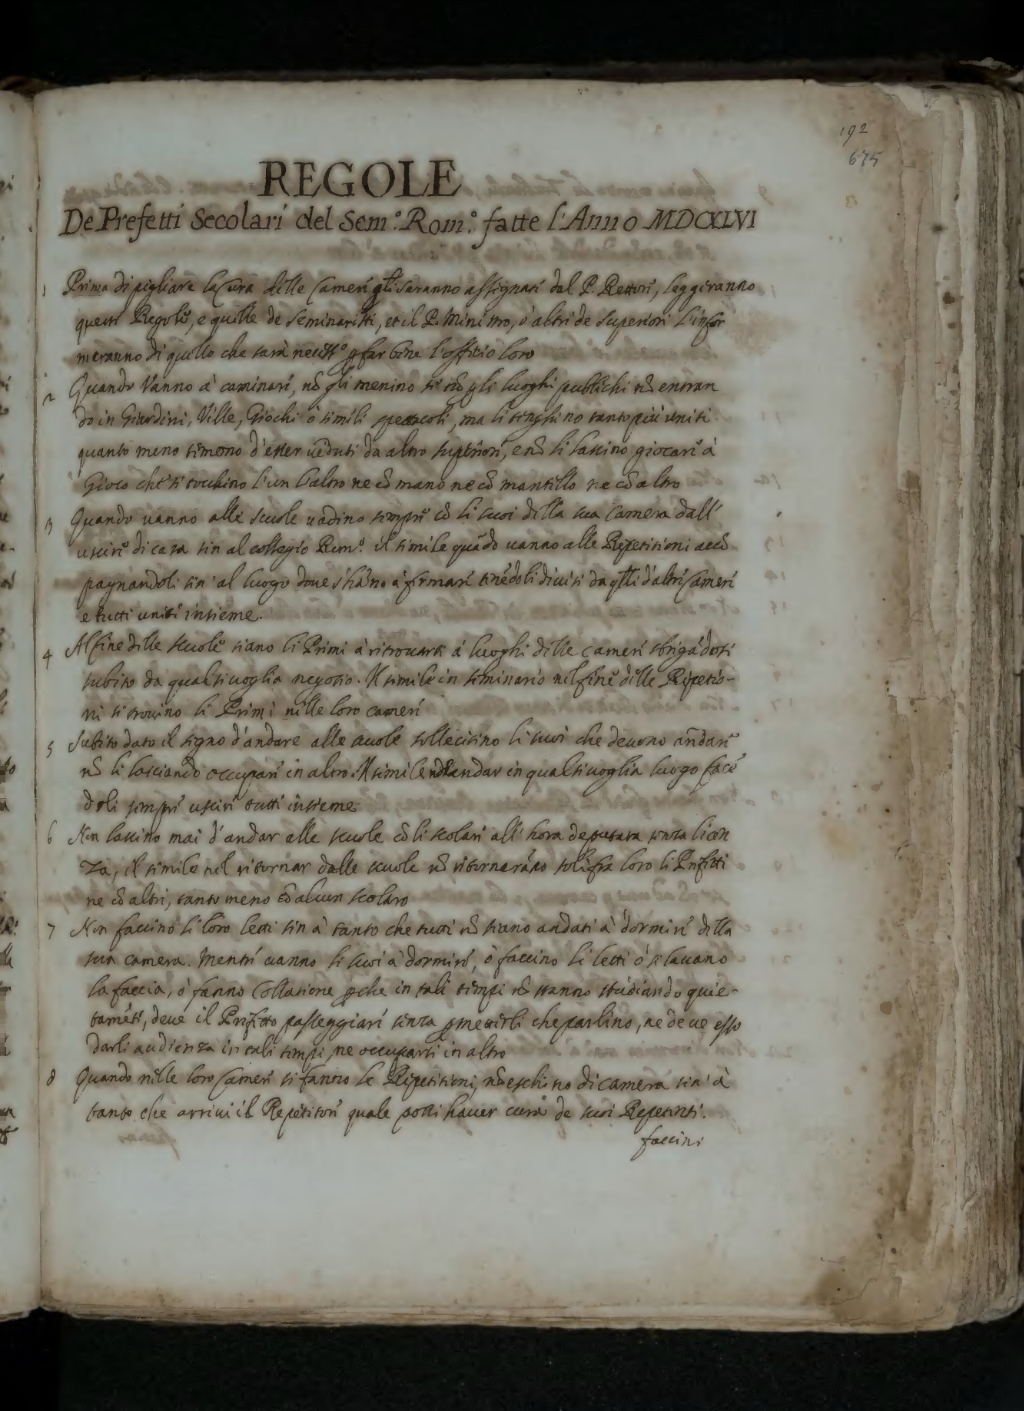 192
675
REGOLE
De Prefetti Secolari del Sem.º Rom.º fatte l'Anno MDCXLVI
1 Prima di pigliare la Cura delle Camere gli saranno assignate dal P. Rettore, leggeranno
queste Regole, e quelle de Seminaristi, et il P. Ministro, ò altri de Superiori l'infor
meranno di quello che sarà necess.º p far bene l'offitio loro
2 Quando vanno à caminare, nõ gli menino si nõ p li luoghi publichi nõ entran
do in Giardini, Ville, Giochi ò simili spettacoli, ma li tenghino tanto più uniti
quanto meno timono d'esser veduti da altro superiore, e nõ li lassino giocare à
Gioco che si tocchino l'un l'altro ne cõ mano ne cõ mantello ne cõ altro
3 Quando vanno alle scuole vadino sempre cõ li suoi della sua Camera dall'
uscire di casa sin al collegio Rom.º il simile quãdo vanno alle Repetitioni accõ
pagnandoli sin' al luogo doue s'hãno à firmare tenẽdoli divisi da q̃lli d'altre Camere
e tutti uniti insieme.
4 Al fine delle scuole siano li Primi à ritrouarsi à luoghi delle camere sbrigãdosi
subito da qualsiuoglia negotio. Il simile in seminario nel fine delle Ripetitio-
ni si trovino li Primi nelle loro camere
5 Subito dato il segno d'andare alle scuole sollecitino li suoi che deuono andare
nõ li lasciando occupare in altro. Il simile nell'andar in qualsiuoglia luogo facẽ
doli sempre uscire tutti insieme.
6 Non lassino mai d'andar alle scuole cõ li scolari all'hora deputata senza licen
za, il simile nel ritornar dalle scuole nõ ritornerãno soli fra loro li Prefetti
ne cõ altri, tanto meno cõ alcun scolaro
7 Non faccino li loro letti sin à tanto che tutti nõ siano andati à dormire della
sua camera. Mentre vanno li suoi à dormire, ò faccino li letti ò si lauano
la faccia, ò fanno Collatione p che in tali tempi nõ stanno studiando quie-
tamẽte, deue il Prefetto passeggiare senza p metterli che parlino, ne deue esso
darli audienza in tali tempi ne occuparsi in altro
8 Quando nelle loro Camere si fanno le Ripetitioni, nõ eschino di camera sin' à
tanto che arrivi il Repetitore quale possi hauer cura de suoi Repetenti.
faccino